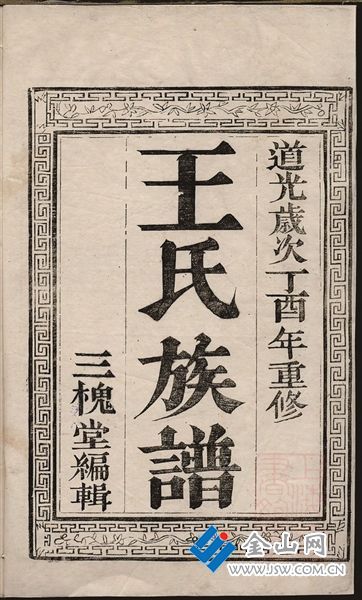 道光歲次丁酉年重修
王氏族譜
三槐堂編輯
金山网
www.JSW.COM.CN